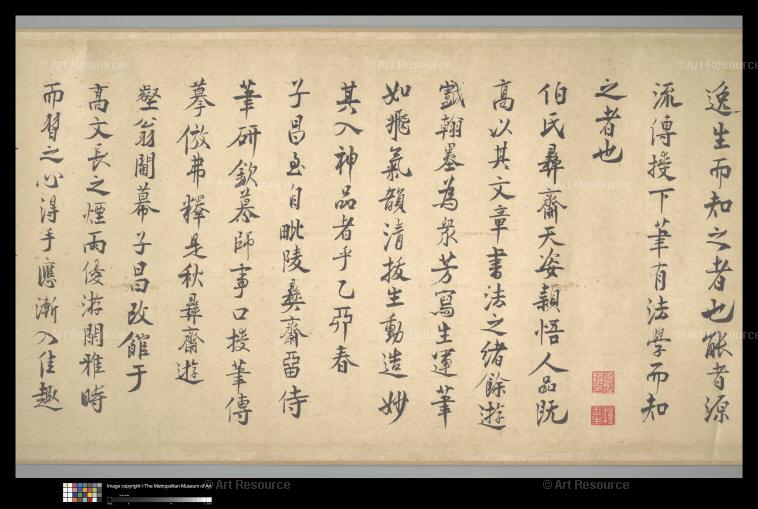 逸生而知之者也能者源
流傳授下筆有法學而知
之者也
伯氏彝齋天姿穎悟人品既
高以其文章書法之緒餘遊
戲翰墨為衆芳寫生運筆
如飛氣韻清拔生動造妙
其入神品者乎乙卯春
子昌至自毗陵彝齋留侍
筆研欽慕師事口授筆傳
摹倣弗釋是秋彝齋遊
壑翁閫幕子昌改館于
高文長之煙雨優游閑雅時
而習之心得手應漸入佳趣
Image copyright ©The Metropolitan Museum of Art
© Art Resource
© Art Resource